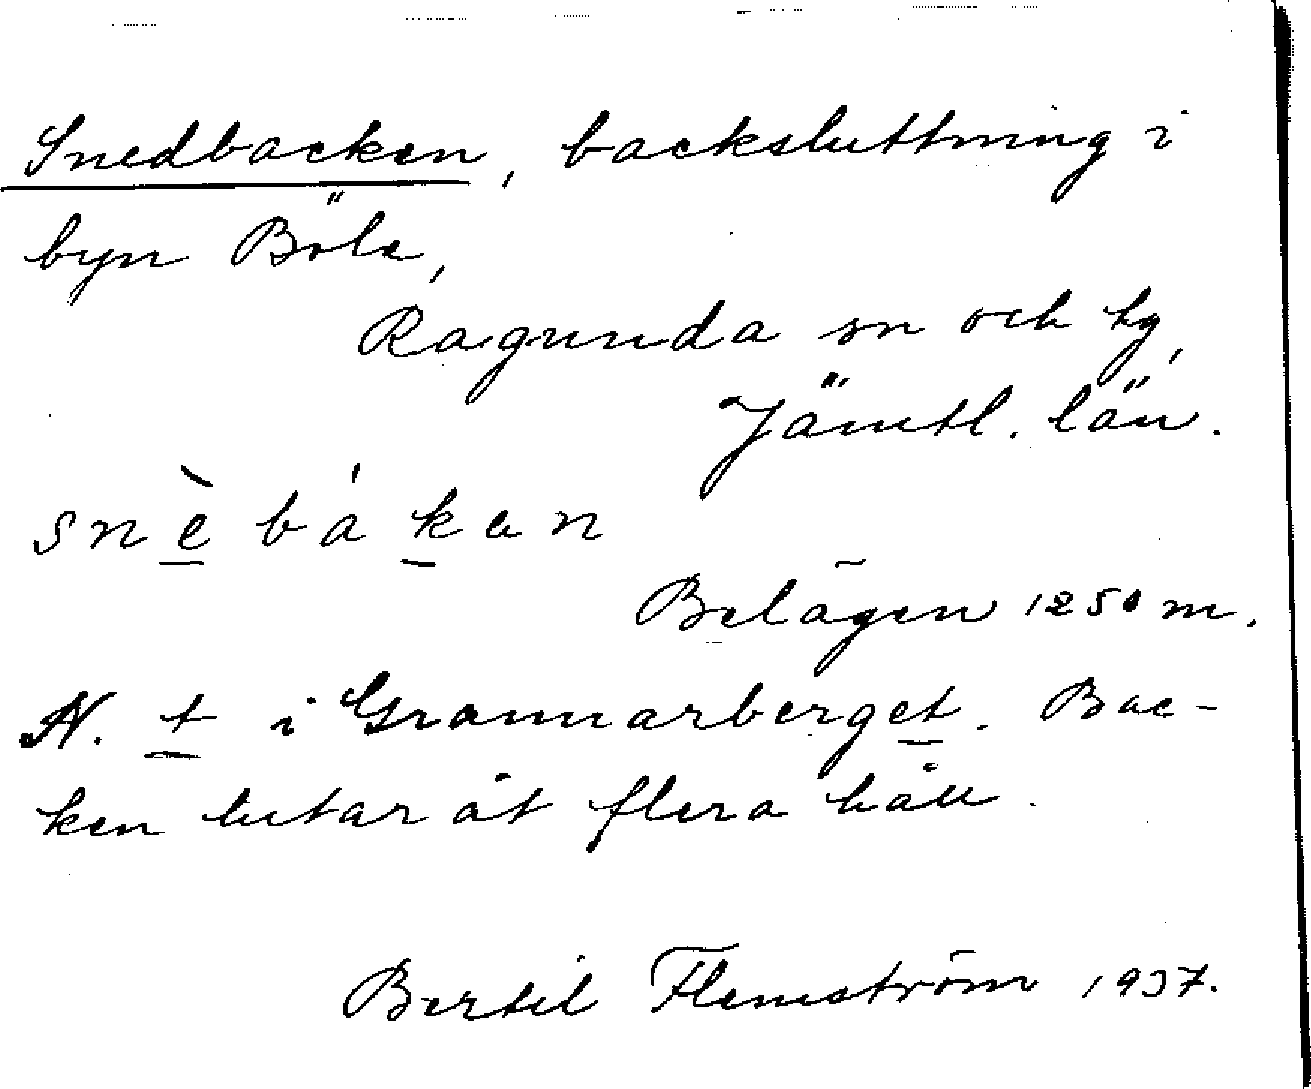 Snedbacken, backsluttning i
byn Böle,
Ragunda sn och hg,
Jämtl. län.
snèbákan
Belägen 1250 m.
N. t i Grannarberget. Bac-
ken lutar åt flera håll.
Bertil Flemström 1937.